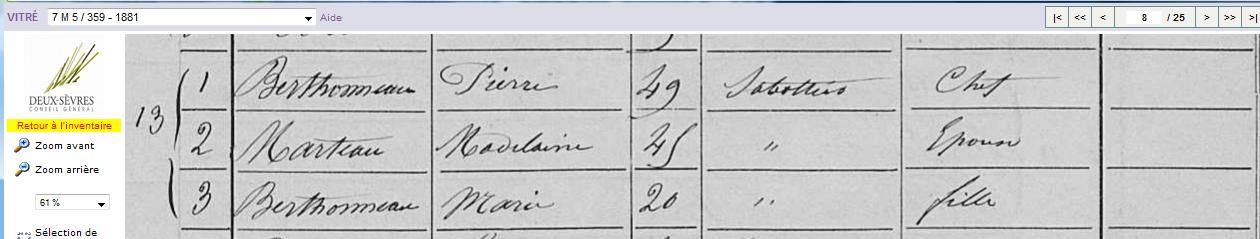 VITRÉ 7 M 5 / 359 - 1881 Aide |< << < 8 / 25 > >> >|
DEUX-SÈVRES
CONSEIL GÉNÉRAL
Retour à l'inventaire
Zoom avant
Zoom arrière
61 %
Sélection de
13
1 Berthonneau Pierre 49 Sabottier Chef
2 Marteau Madelaine 45 " Epouse
3 Berthonneau Marie 20 " fille